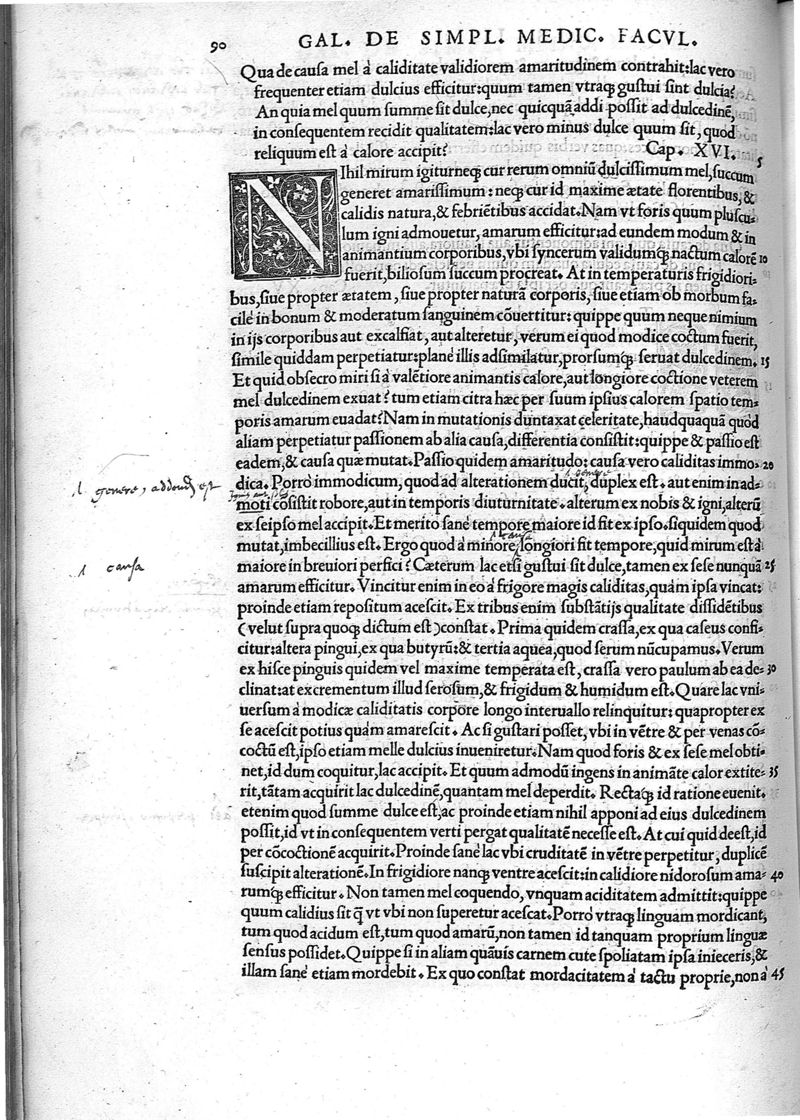 90 GAL. DE SIMPL. MEDIC. FACVL.
Qua de cauſa mel à caliditate validiorem amaritudinem contrahit: lac vero
frequenter etiam dulcius efficitur: quum tamen vtraq; guſtui ſint dulcia?
An quia mel quum ſumme ſit dulce, nec quicquã addi poſſit ad dulcedinẽ,
in conſequentem recidit qualitatem: lac vero minus dulce quum ſit, quod
reliquum eſt à calore accipit? Cap. XVI. 5
NIhil mirum igitur neq; cur rerum omniũ dulciſſimum mel, ſuccum
generet amariſſimum: neq; cur id maxime ætate florentibus, &
calidis natura, & febriẽtibus accidat. Nam vt foris quum pluſcu-
lum igni admouetur, amarum efficitur: ad eundem modum & in
animantium corporibus, vbi ſyncerum validumq; nactum calorẽ 10
fuerit, bilioſum ſuccum procreat. At in temperaturis frigidiori-
bus, ſiue propter ætatem, ſiue propter naturã corporis, ſiue etiam ob morbum fa-
cile in bonum & moderatum ſanguinem cõuertitur: quippe quum neque nimium
in ijs corporibus aut excalfiat, aut alteretur, verum ei quod modice coctum fuerit,
ſimile quiddam perpetiatur: planè illis adſimilatur, prorſumq; ſeruat dulcedinem. 15
Et quid obſecro miri ſi à valẽtiore animantis calore, aut longiore coctione veterem
mel dulcedinem exuat? tum etiam citra hæc per ſuum ipſius calorem ſpatio tem-
poris amarum euadat? Nam in mutationis duntaxat celeritate, haudquaquã quòd
aliam perpetiatur paſſionem ab alia cauſa, differentia conſiſtit: quippe & paſſio eſt
eadem, & cauſa quæ mutat. Paſſio quidem amaritudo: cauſa vero caliditas immo- 20
dica. Porrò immodicum, quod ad alterationem ducit, duplex eſt. aut enim in ad-
moti cõſiſtit robore, aut in temporis diuturnitate. alterum ex nobis & igni, alterũ
ex ſeipſo mel accipit. Et merito ſanè tempore maiore id fit ex ipſo. ſiquidem quod
mutat, imbecillius eſt. Ergo quod à minore, longiori fit tempore, quid mirum eſt à
maiore in breuiori perfici? Cæterum lac etſi guſtui ſit dulce, tamen ex ſeſe nunquã 25
amarum efficitur. Vincitur enim in eo à frigore magis caliditas, quàm ipſa vincat:
proinde etiam repoſitum aceſcit. Ex tribus enim ſubſtãtijs qualitate diſſidẽtibus
(velut ſupra quoq; dictum eſt) conſtat. Prima quidem craſſa, ex qua caſeus confi-
citur: altera pingui, ex qua butyrũ: & tertia aquea, quod ſerum nũcupamus. Verum
ex hiſce pinguis quidem vel maxime temperata eſt, craſſa vero paulum ab ea de- 30
clinat: at excrementum illud ſeroſum, & frigidum & humidum eſt. Quare lac vni-
uerſum à modicæ caliditatis corpore longo interuallo relinquitur: quapropter ex
ſe aceſcit potius quàm amareſcit. Ac ſi guſtari poſſet, vbi in vẽtre & per venas cõ-
coctũ eſt, ipſo etiam melle dulcius inueniretur. Nam quod foris & ex ſeſe mel obti-
net, id dum coquitur, lac accipit. Et quum admodũ ingens in animãte calor extite- 35
rit, tãtam acquirit lac dulcedinẽ, quantam mel deperdit. Rectaq; id ratione euenit.
etenim quod ſumme dulce eſt, ac proinde etiam nihil apponi ad eius dulcedinem
poſſit, id vt in conſequentem verti pergat qualitatẽ neceſſe eſt. At cui quid deeſt, id
per cõcoctionẽ acquirit. Proinde ſanè lac vbi cruditatẽ in vẽtre perpetitur, duplicẽ
ſuſcipit alterationẽ. In frigidiore nanq; ventre aceſcit: in calidiore nidoroſum ama- 40
rumq; efficitur. Non tamen mel coquendo, vnquam aciditatem admittit: quippe
quum calidius ſit q̃ vt vbi non ſuperetur aceſcat. Porrò vtraq; linguam mordicant,
tum quod acidum eſt, tum quod amarũ, non tamen id tanquam proprium linguæ
ſenſus poſſidet. Quippe ſi in aliam quãuis carnem cute ſpoliatam ipſa inieceris, &
illam ſanè etiam mordebit. Ex quo conſtat mordacitatem à tactu proprie, non à 45
genere,
cauſa